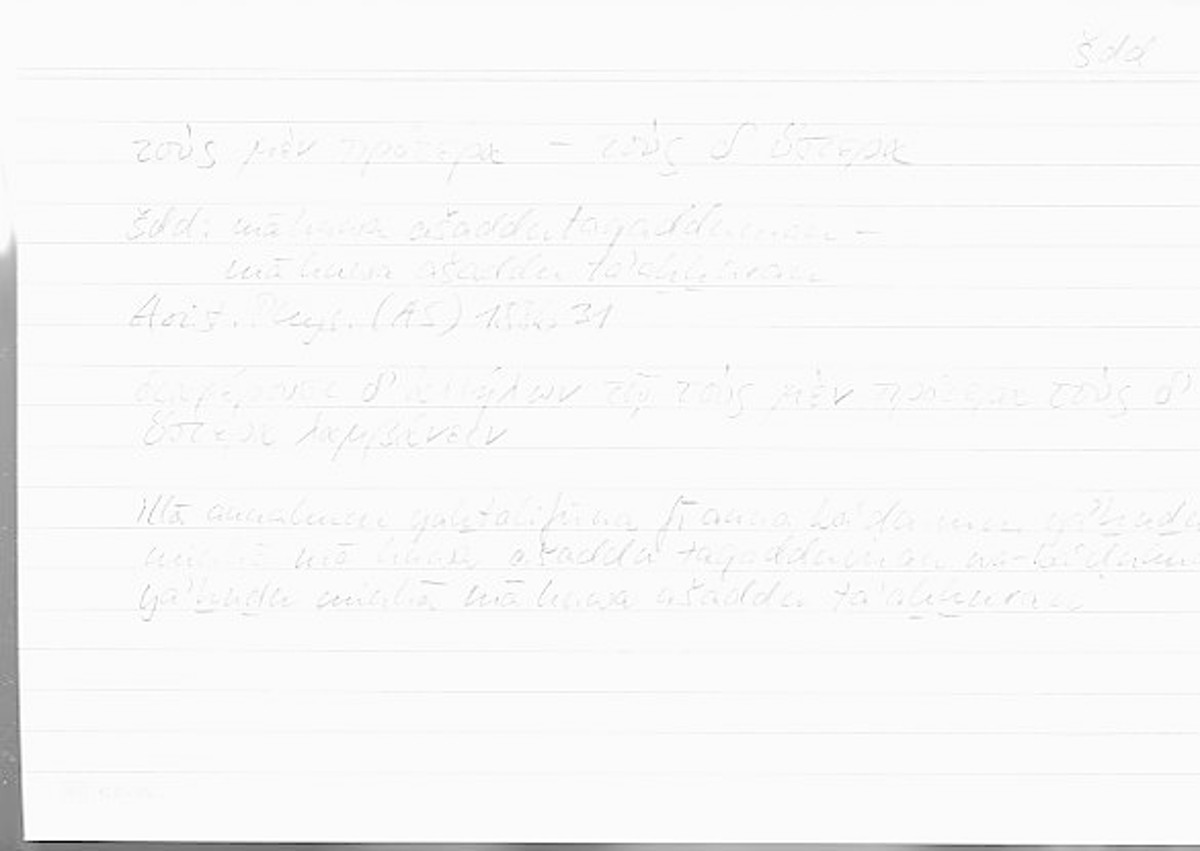 šdd
τοὺς μὲν πρότερα – τοὺς δ' ὕστερα
šdd: mā huwa ašaddu taqadduman –
mā huwa ašaddu ta'aḫḫuran
Arist. Phys. (AS) 31
διαφέρουσι δ' ἀλλήλων τῷ τοὺς μὲν πρότερα τοὺς δ'
ὕστερα λαμβάνειν
illā annahum yaḫtalifūna fī anna ba'ḍahum ya'ḫuḏu
minhā mā huwa ašaddu taqadduman wa-ba'ḍahum
ya'ḫuḏu minhā mā huwa ašaddu ta'aḫḫuran